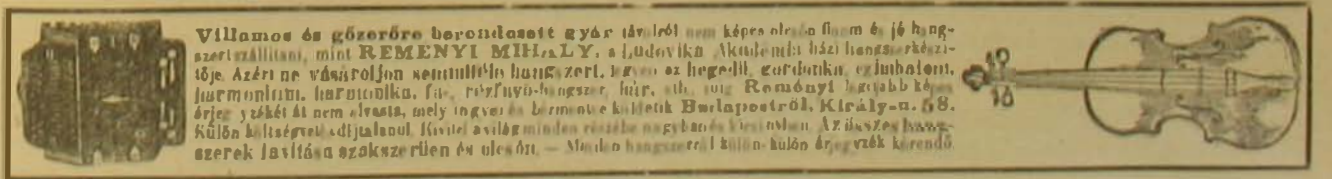 Villamos és gőzerőre berendezett gyár távolról nem képes olcsón finom és jó hang-
szert szállitani, mint REMÉNYI MIHÁLY, a Ludovika Akadémia házi hangszerkészi-
tője. Azért ne vásároljon semmiféle hangszert, legyen az hegedü, gordonka, czimbalom,
harmonium, harmonika, fa-, rézfuvó-hangszer, húr, stb, mig Reményi legujabb képes
árjegyzékét át nem olvasta, mely ingyen és bérmentve küldetik Budapestről, Király-u. 58.
Külön költségvetés díjtalanul. Kivitel a világ minden részébe nagyban és kicsinyben. Az összes hang-
szerek javítása szakszerüen és olcsón. — Minden hangszerről külön-külön árjegyzék kérendő.